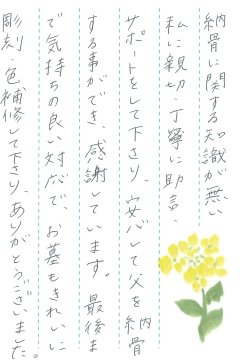 納骨に関する知識が無い
私に親切・丁寧に助言、
サポートをして下さり、安心して父を納骨
する事ができ、感謝しています。最後ま
で気持ちの良い対応で、お墓もきれいに
彫刻・色補修して下さり、ありがとうございました。